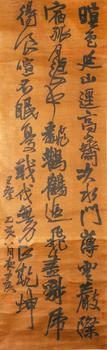 暝色延山逕高齋次水門薄雲巖際
宿孤月浪中翻鸛鶴追飛盡豺虎
得食喧不眠憂戰伐無力正乾坤
王鐸 乙亥八月